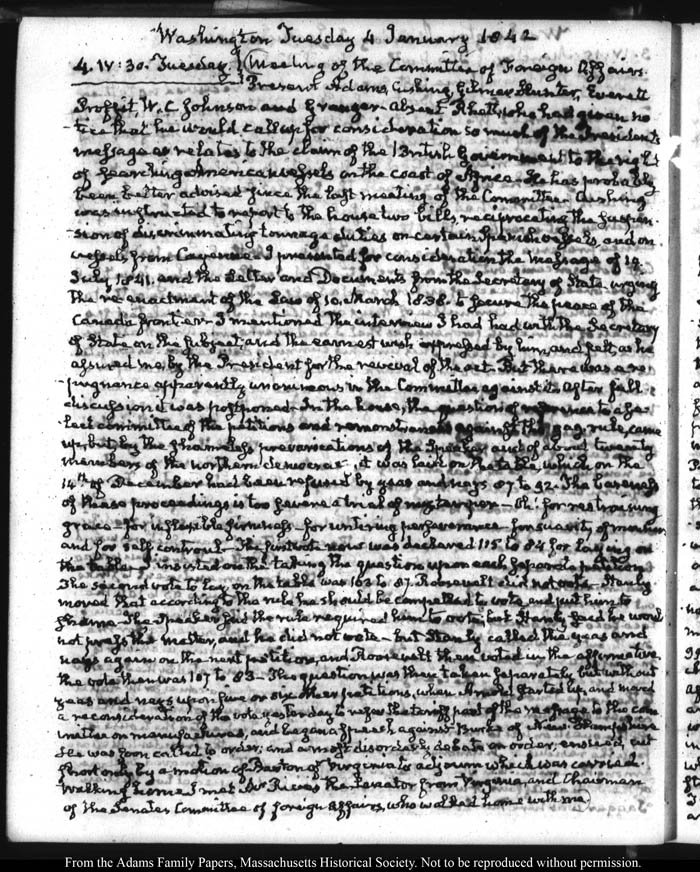 Washington Tuesday 4 January 1842
4. IV:30. Tuesday. Meeting of the Committee of Foreign Affairs.
Present Adams, Cushing, Gilmer, Hunter, Everett
Proffit, W. C. Johnson and Granger. absent Rhett, who had given no-
tice that he would call up for consideration so much of the President's
message as relates to the claim of the British Government to the right
of searching American vessels on the coast of Africa. He has probably
been better advised since the last meeting of the Committee. Cushing
was instructed to report to the house two bills, reciprocating the suspen-
-sion of discriminating tonnage duties on certain Spanish vessels, and on
vessels from Cayenne. I presented for consideration the message of 14
July 1841. and the Letter and Documents from the Secretary of State, urging
the re-enactment of the Law of 10. March 1838. to secure the peace of the
Canada frontier. I mentioned the interview I had had with the Secretary
of State on the subject, and the earnest wish expressed by him, and felt, as he
assured me, by the President for the revival of the act. But there was a re-
-pugnance apparently unanimous in the Committee against it. After full
discussion it was postponed. In the house, the question of reference to a se-
lect committee of the petitions and remonstrances against the gag-rule, came
up, but by the shameless prevarications of the Speaker and of about twenty
members of the northern democrats, it was laid on the table, which on the
14th of December had been refused by yeas and nays 87 to 92. The baseness
of these proceedings is too severe a trial of my temper. Oh! for restraining
grace—for inflexible firmness—for untiring perseverance—for suavity of manner
and for self controul. The first vote now was declared 115 to 84 for laying on
the table. I insisted on the taking the question upon each separate petition
The second vote to lay on the table was 103 to 87. Roosevelt did not vote. Stanly
moved that according to the rule he should be compelled to vote, and put him to
shame. The Speaker said the rule required him to vote; but Stanly said he would
not press the matter, and he did not vote—but Stanly called the yeas and
nays again on the next petition, and Roosevelt then voted in the affirmative
the vote then was 107 to 83. The question was then taken separately but without
yeas and nays upon five or six other petitions, when Arnold started up, and moved
a reconsideration of the vote yesterday to refer the tariff part of the message to the com-
mittee on manufactures, and began a speech against Burke of New Hampshire
He was soon called to order; and a most disorderly debate on order, ensued, cut
short only by a motion of Barton of Virginia to adjourn which was carried.
Walking home I met Mr Rives the Senator from Virginia, and Chairman
of the Senates Committee of foreign affairs, who walked home with me
From the Adams Family Papers, Massachusetts Historical Society. Not to be reproduced without permission.